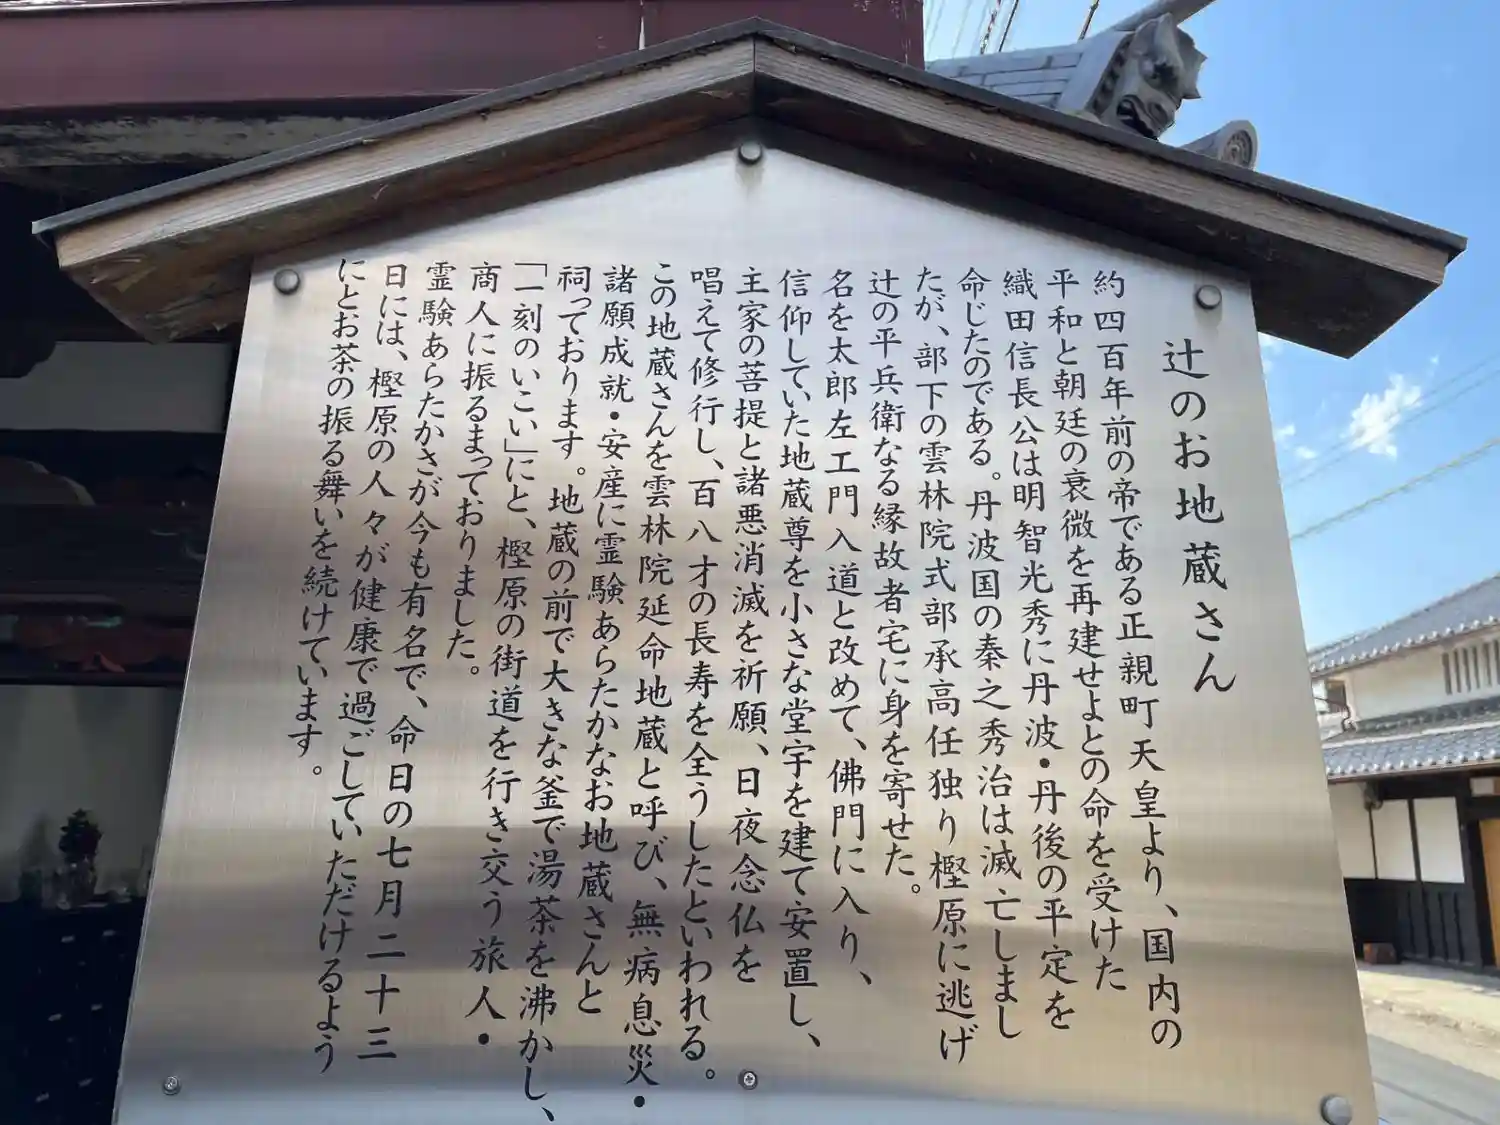 辻のお地蔵さん
約四百年前の帝である正親町天皇より、国内の
平和と朝廷の衰微を再建せよとの命を受けた
織田信長公は明智光秀に丹波・丹後の平定を
命じたのである。丹波国の秦之秀治は滅亡しまし
たが、部下の雲林院式部承高任独り樫原に逃げ
辻の平兵衛なる縁故者宅に身を寄せた。
名を太郎左エ門入道と改めて、佛門に入り、
信仰していた地蔵尊を小さな堂宇を建て安置し、
主家の菩提と諸悪消滅を祈願、日夜念仏を
唱えて修行し、百八才の長寿を全うしたといわれる。
この地蔵さんを雲林院延命地蔵と呼び、無病息災・
諸願成就・安産に霊験あらたかなお地蔵さんと
祠っております。地蔵の前で大きな釜で湯茶を沸かし、
「一刻のいこい」にと、樫原の街道を行き交う旅人・
商人に振るまっておりました。
霊験あらたかさが今も有名で、命日の七月二十三
日には、樫原の人々が健康で過ごしていただけるよう
にとお茶の振る舞いを続けています。